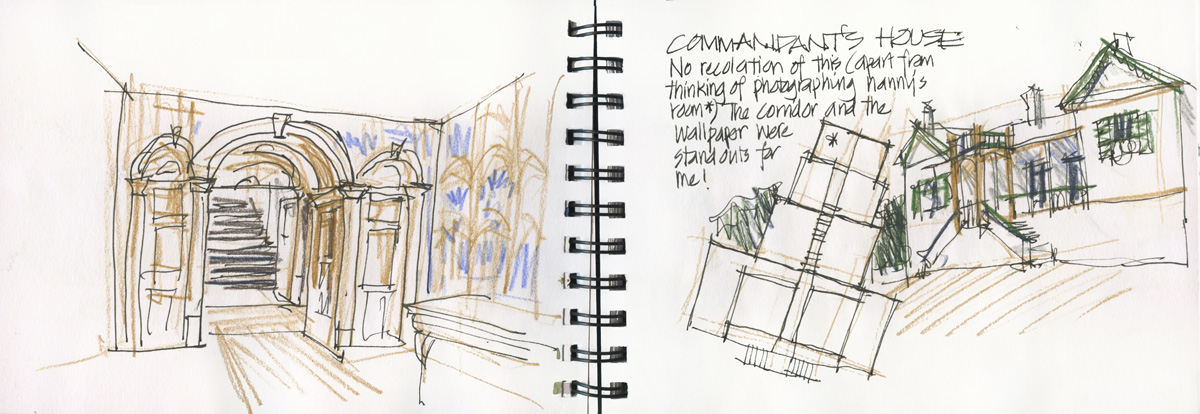 COMMANDANT'S HOUSE
No recolation of this (apart from
thinking of photographing nanny's
room*) The corridor and the
wallpaper were
stand outs for
me!
*